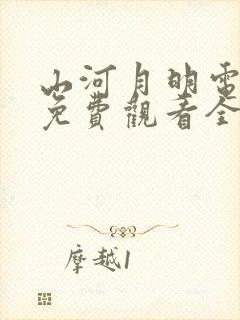 山河月明電
免費觀看全
摩越1